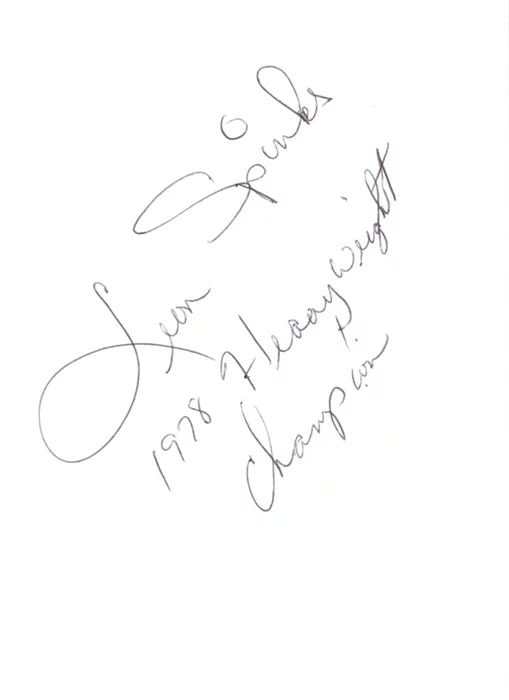 Leon Spinks
1978 Heavy Weight
Champion